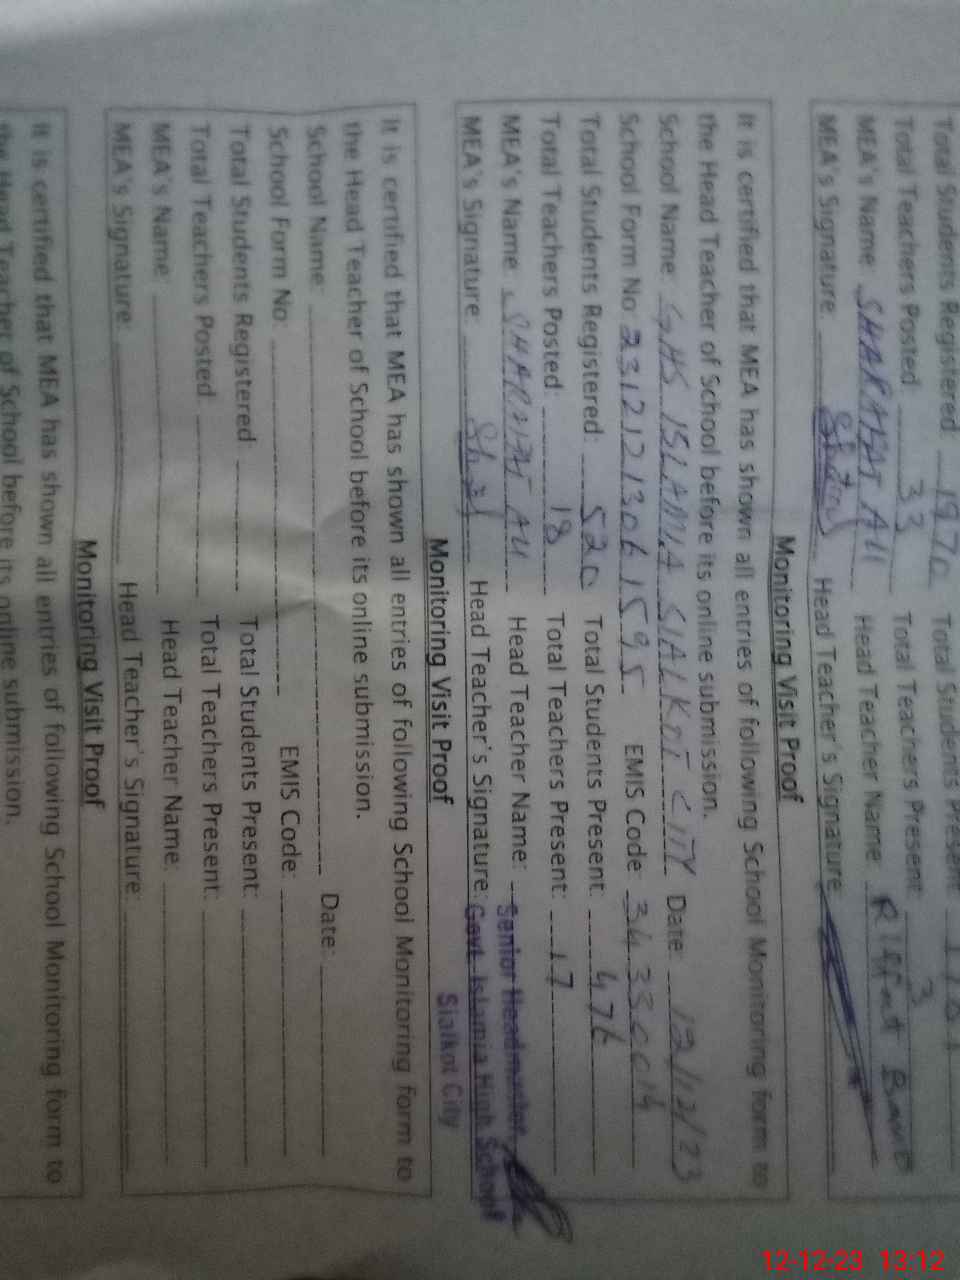 Total Students Registered: 1970 Total Students Present
Total Teachers Posted: 33 Total Teachers Present: 3
MEA's Name: SHARAFAT ALI Head Teacher Name: Riffat
MEA's Signature: Head Teacher's Signature:
Monitoring Visit Proof
It is certified that MEA has shown all entries of following School Monitoring form to
the Head Teacher of School before its online submission.
School Name: GHS ISLAMIA SIALKOT CITY Date: 12/12/23
School Form No: 23121213061595 EMIS Code: 34330014
Total Students Registered: 520 Total Students Present: 476
Total Teachers Posted: 18 Total Teachers Present: 17
MEA's Name: SHARAFAT ALI Head Teacher Name: Senior Headmaster
MEA's Signature: Head Teacher's Signature: Govt. Islamia High School
Sialkot City
Monitoring Visit Proof
It is certified that MEA has shown all entries of following School Monitoring form to
the Head Teacher of School before its online submission.
School Name: Date:
School Form No: EMIS Code:
Total Students Registered: Total Students Present:
Total Teachers Posted Total Teachers Present:
MEA's Name: Head Teacher Name:
MEA's Signature: Head Teacher's Signature:
Monitoring Visit Proof
It is certified that MEA has shown all entries of following School Monitoring form to
the Head Teacher of School before its online submission.
12-12-23 13:12